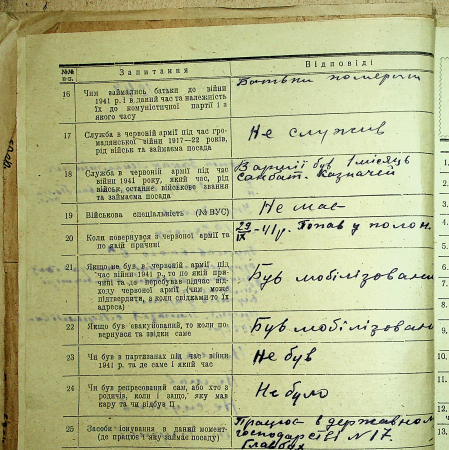 №№ п-п. Запитання Відповіді
16 Чим займались батьки до війни
1941 р. і в даний час та належність
їх до комуністичної партії і з
якого часу
Батьки померли
17 Служба в червоній армії під час гро-
мадянської війни 1917—22 років,
рід військ та займаєма посада
Не служив
18 Служба в червоній армії під час
війни 1941 року, який час, рід
військ, останнє військове звання
та займаєма посада
В армії був 1 місяць
санбат. Казначей
19 Військова спеціальність (№ ВУС)
Не має
20 Коли повернувся з червоної армії та
по якій причині
29/IX -41 р. Попав у полон
21 Якщо не був в червоній армії під
час війни 1941 р., то по якій при-
чині та де перебував підчас від-
ходу червоної армії (чим може
підтвердити, а коли свідками то їх
адреса)
Був мобілізован
22 Якщо був евакуйований, то коли по-
вернувся та звідки саме
Був мобілізован
23 Чи був в партизанах під час війни
1941 р. та де саме і який час
Не був
24 Чи був репресований сам, або хто з
родичів, коли і защо, яку мав
кару та чи відбув її
Не було
25 Засоби існування в даний момент
(де працює і яку займає посаду)
Працює в державном
господарстві № 17.
Главбух
1.
2.
3.
4.
5.
6.
7.
8.
9.
10.
11.
12.
13.